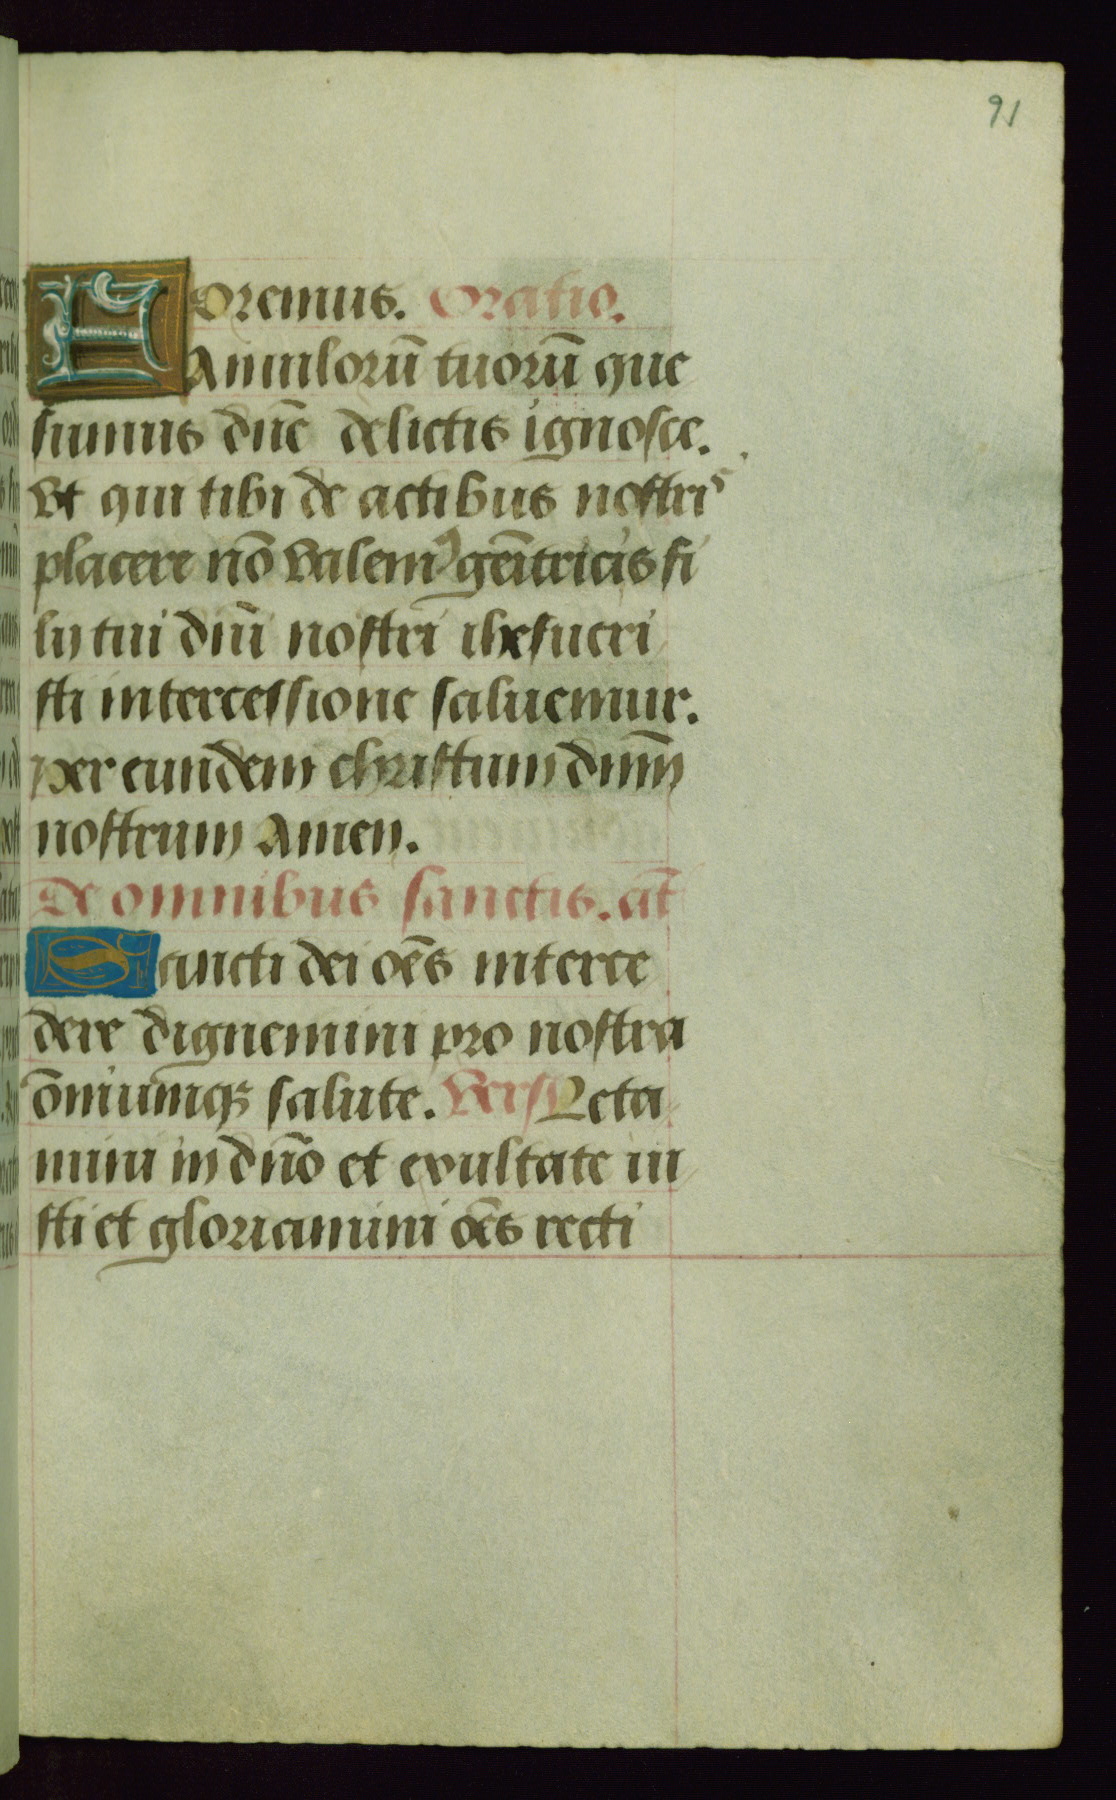 91
Oremus. Oratio.
FAmulorū tuorū que
sumus dn̄e delictis ignosce.
vt qui tibi de actibus nostris
placere nō valemꝰ gēitricis fi
lij tui dn̄i nostri ihesucri
sti intercessione saluemur.
Per eundem christum dnm̄
nostrum Amen.
De omnibus sanctis. an̄t
Sancti dei oēs interce
dere dignemini pro nostra
ōniumqꝫ salute. Vers Leta
mini in dn̄o et exultate iu
sti et gloriamini oēs recti